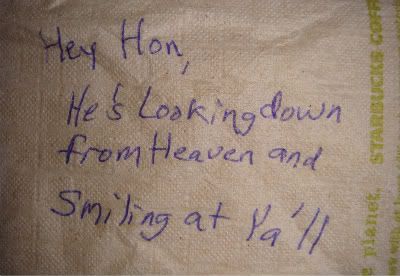 Hey Hon,
He's Looking down
from Heaven and
Smiling at Ya'll
STARBUCKS COFF
e Planet.